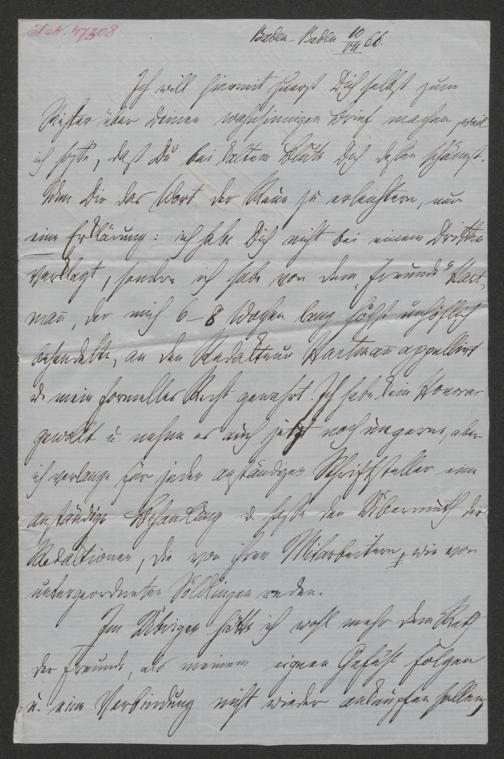 Baden-Baden 10/VII 66.
Ich will hiermit zuerst Dich selbst zum
Richter über Deinen wahnsinnigen Brief machen, weil
ich hoffe, daß Du bei kaltem Blute Dich dessen schämst.
Um Dir das Wort der Reue zu erleichtern, nur
eine Erklärung: ich habe Dich nicht bei einem Dritten
verklagt, sondern ich habe von dem „Freunde“ Hart-
mann, der mich 6–8 Wochen lang höchst unhöflich
behandelte, an den Redakteur Hartmann appellirt
u. mein formelles Recht gewahrt. Ich habe kein Honorar
gewollt u. nehme es auch jetzt noch ungerne, aber
ich verlange für jeden anständigen Schriftsteller eine
anständige Behandlung u. hasse den Übermuth der
Redaktionen, die von ihren Mitarbeitern, wie von
untergeordneten Söldlingen reden.
Im Übrigen hätte ich wohl mehr dem Rath
der Freunde, als meinem eignen Gefühl folgen
u. eine Verbindung nicht wieder anknüpfen sollen,